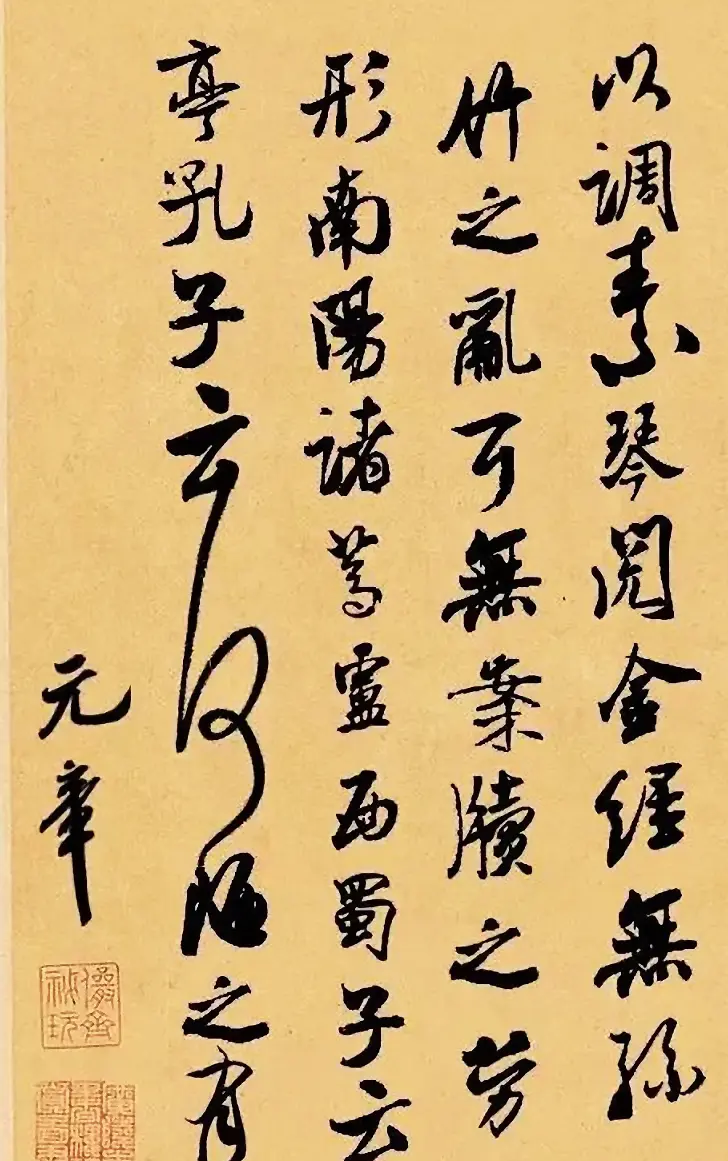 以調素琴閱金經無絲
竹之亂耳無案牘之勞
形南陽諸葛廬西蜀子云
亭孔子云何陋之有
元章
儼齋
祕玩